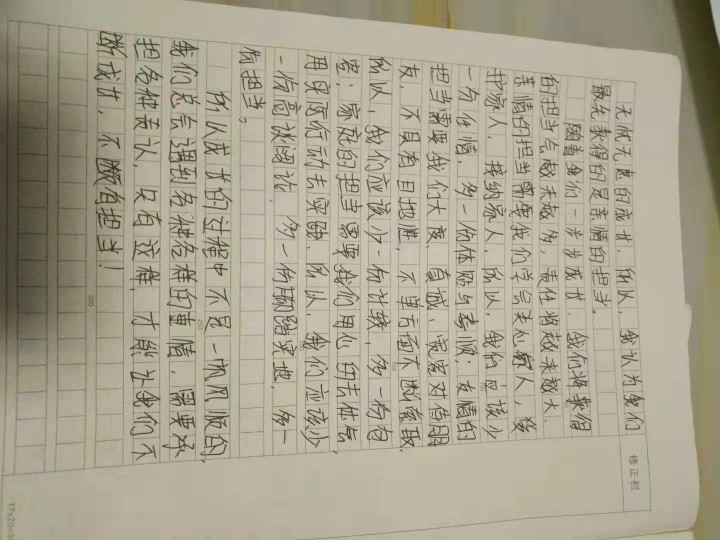 无忧无虑的成长，所以，我认为我们
最先获得的是亲情的担当。
随着我们一步步成长，我们将获得
的担当气越来越多，责任将越来越大。
亲情的担当需要我们学会关心家人，爱
护家人，接纳家人，所以，我们应该少
一句任情，多一份体贴与孝顺；友情的
担当需要我们大度、真诚、宽容对待朋
友，不只有目地性，不单方面不断索取，
所以，我们应该少一份计较，多一份包
容；家庭的担当需要我们用心的去体会，
用实际行动去实践，所以，我们应该少
一份高谈阔论，多一份脚踏实地，多一
份担当。
所以成长的过程中不是一帆风顺的，
我们总会遇到各种各样的事情，需要承
担各种责认，只有这样，才能让我们不
断成长，不断有担当！
修正栏
300
17×20=